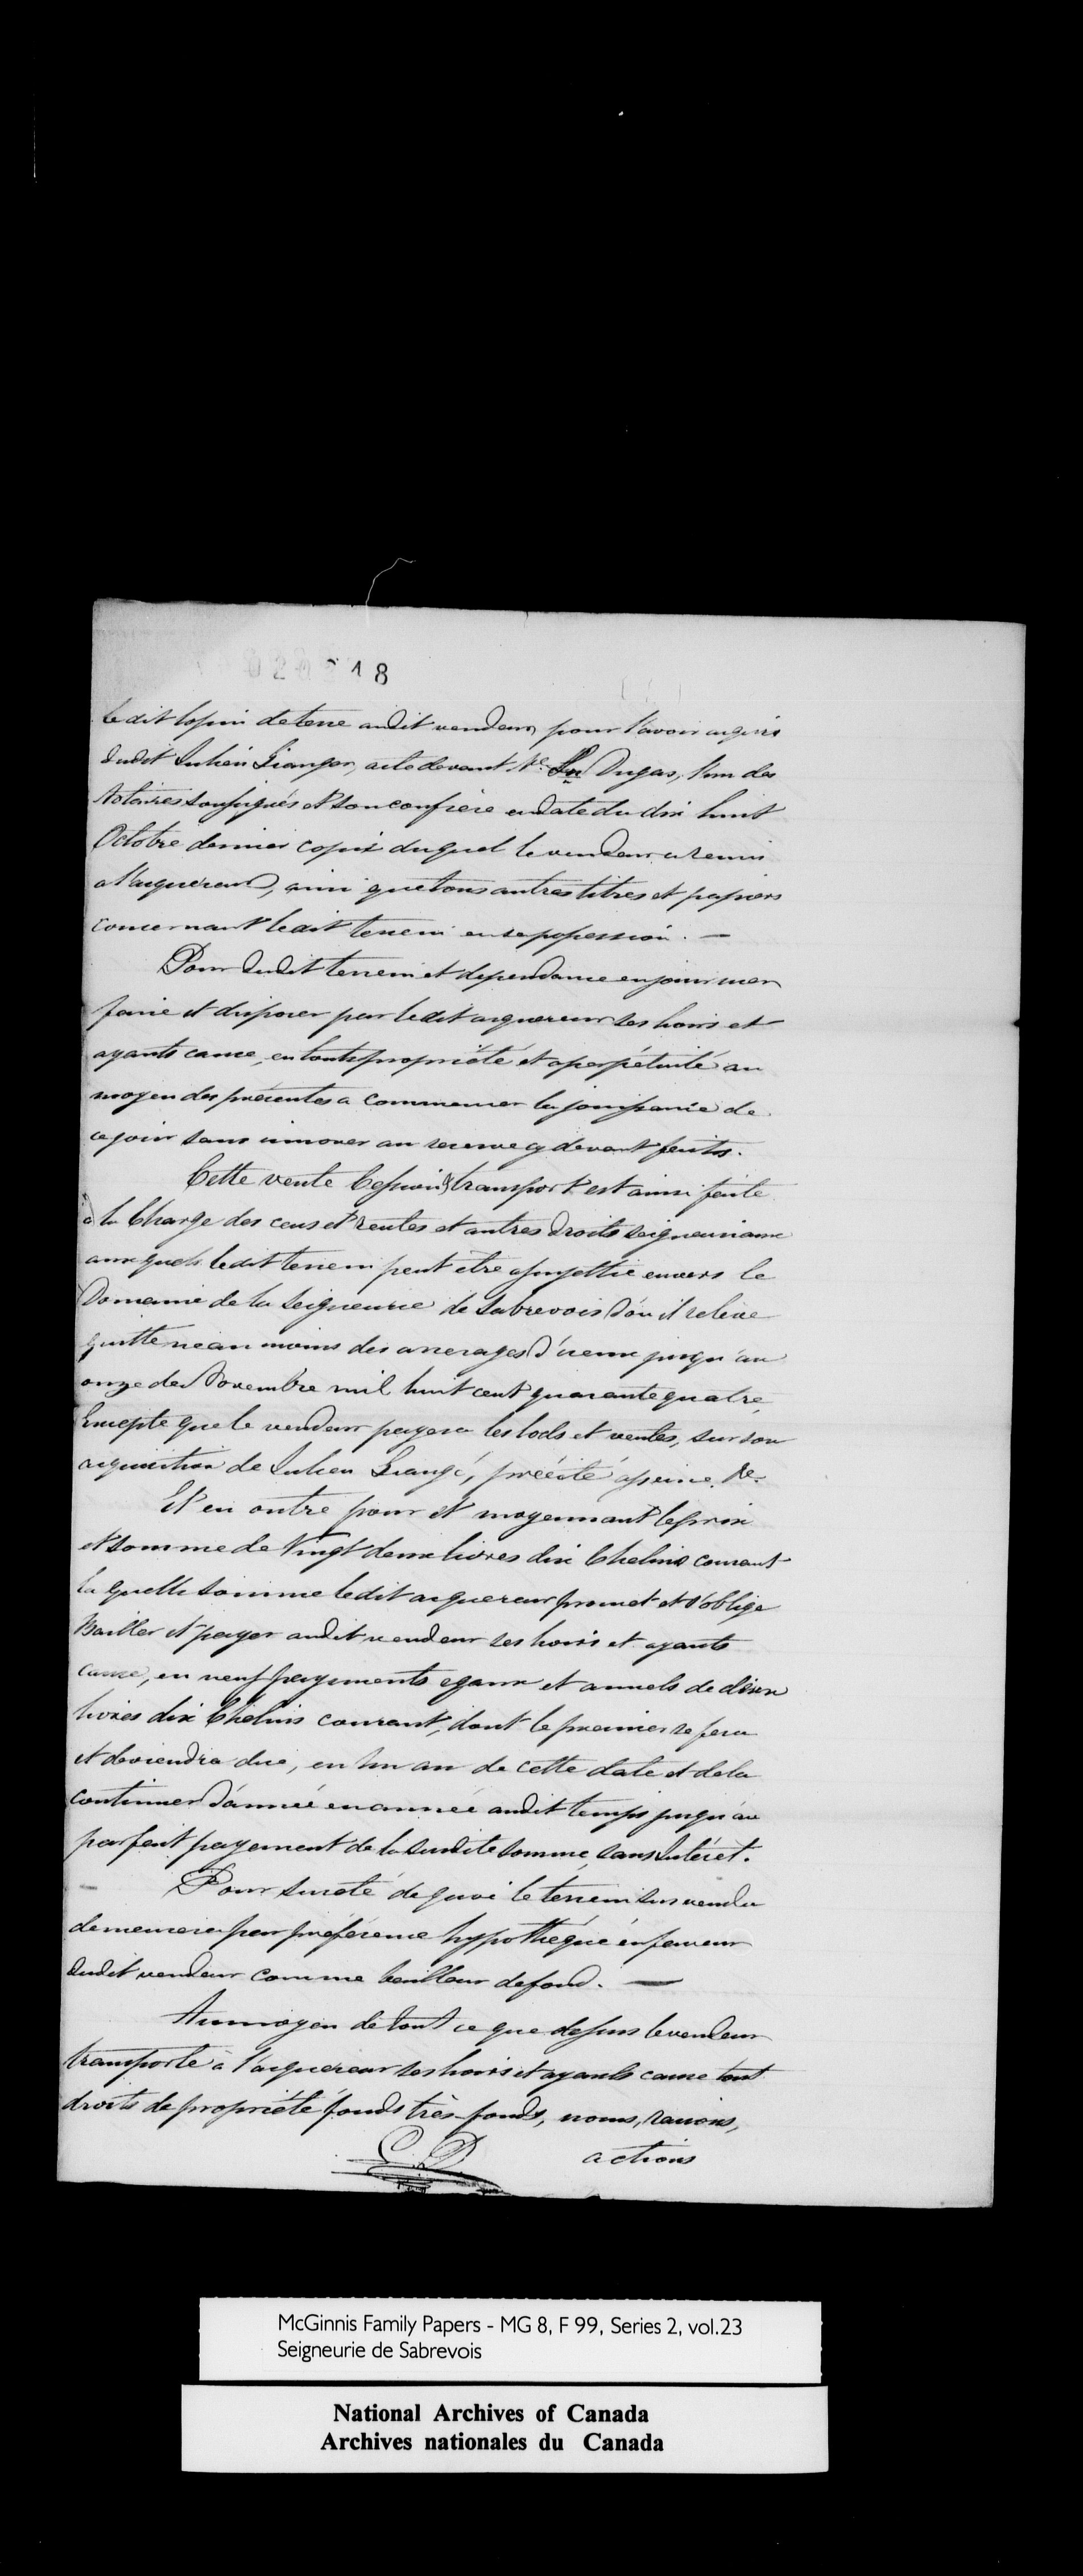 18
le dit lopin de terre audit vendeur, pour l'avoir acquis
dudit Julien Granger, acte devant Me. Dugas, l'un des
Notaires soussignés et son confrère en date du dix huit
Octobre dernier copie duquel le vendeur a remis
a l'acquereur, ainsi que tous autres titres et papiers
concernant le dit terrein en sa possession. —
Pour dudit terrein et dependance en jouir user
faire et disposer par le dit acquereur ses hoirs et
ayants cause, en toute propriété et a perpétuité au
moyen des présentes a commencer la jouissance de
ce jour sans innover au reserve cy devant faites.
Cette vente Cession & transport est ainsi faite
à la Charge des cens et rentes et autres droits seigneuriaux
auxquels le dit terrein peut etre assujettie envers le
Domaine de la Seigneurie de Sabrevois d'ou il releve
quitte neanmoins des arrerages d'iceux jusqu'au
onze de Novembre mil huit cent quarante quatre,
Excepte que le vendeur payera les lods et ventes, sur son
acquisition de Julien Grangé, précité a peine &c.
Et en outre pour et moyennant le prix
et somme de Vingt deux livres dix Chelins courant
la quelle somme le dit acquereur promet et s'oblige
Bailler et payer audit vendeur ses hoirs et ayants
cause, en neuf payements egaux et annuels de deux
livres dix Chelins courant, dont le premier se fera
et deviendra due, en un an de cette date et de la
continuer d'année en année audit temps jusqu'au
parfait payement de la susdite somme, sans Intéret.
Pour sureté de quoi le terrein sus vendu
demeurera par préférence hypothéqué en faveur
dudit vendeur comme bailleur de fond. —
Au moyen de tout ce que dessus le vendeur
transporte à l'acquereur ses hoirs et ayants cause tout
droits de propriété fonds très-fonds, noms, raisons,
actions
C. D
McGinnis Family Papers - MG 8, F 99, Series 2, vol.23
Seigneurie de Sabrevois
National Archives of Canada
Archives nationales du Canada